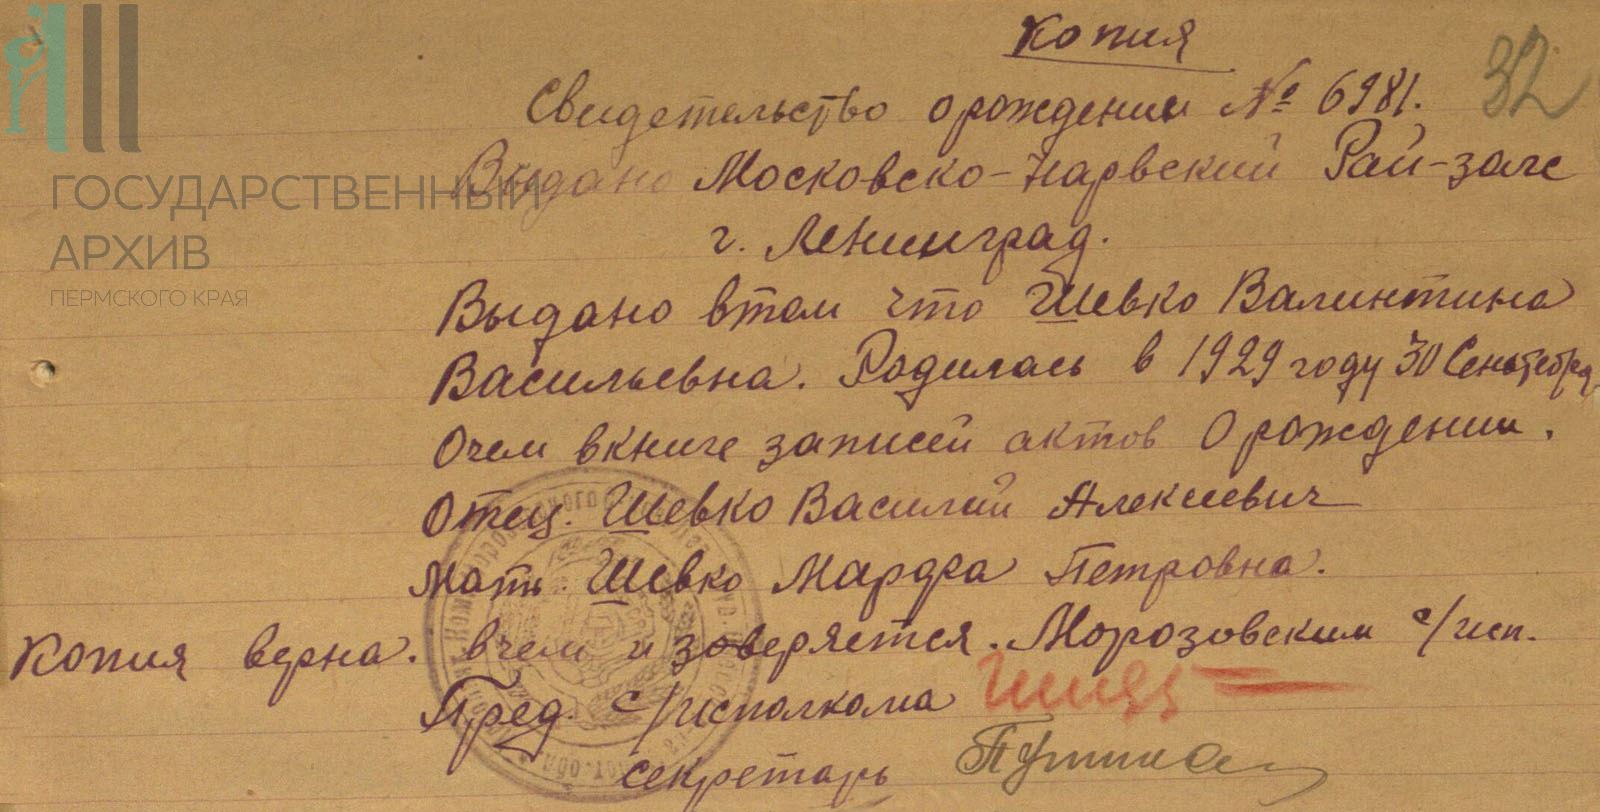 Копия
32
Свидетельство о рождении № 6981.
Выдано Московско-Нарвский Рай-загс
г. Ленинград.
Выдано втом что Шевко Валинтина
Васильевна. Родилась в 1929 году 30 Сентебря
Очем вкниге записей актов О рождении.
Отец. Шевко Василий Алексеевич
Мать. Шевко Марфа Петровна.
Копия верна. вчем и заверяется. Морозовским с/исп.
Пред. с/исполкома
секретарь
ГОСУДАРСТВЕННЫЙ
АРХИВ
ПЕРМСКОГО КРАЯ